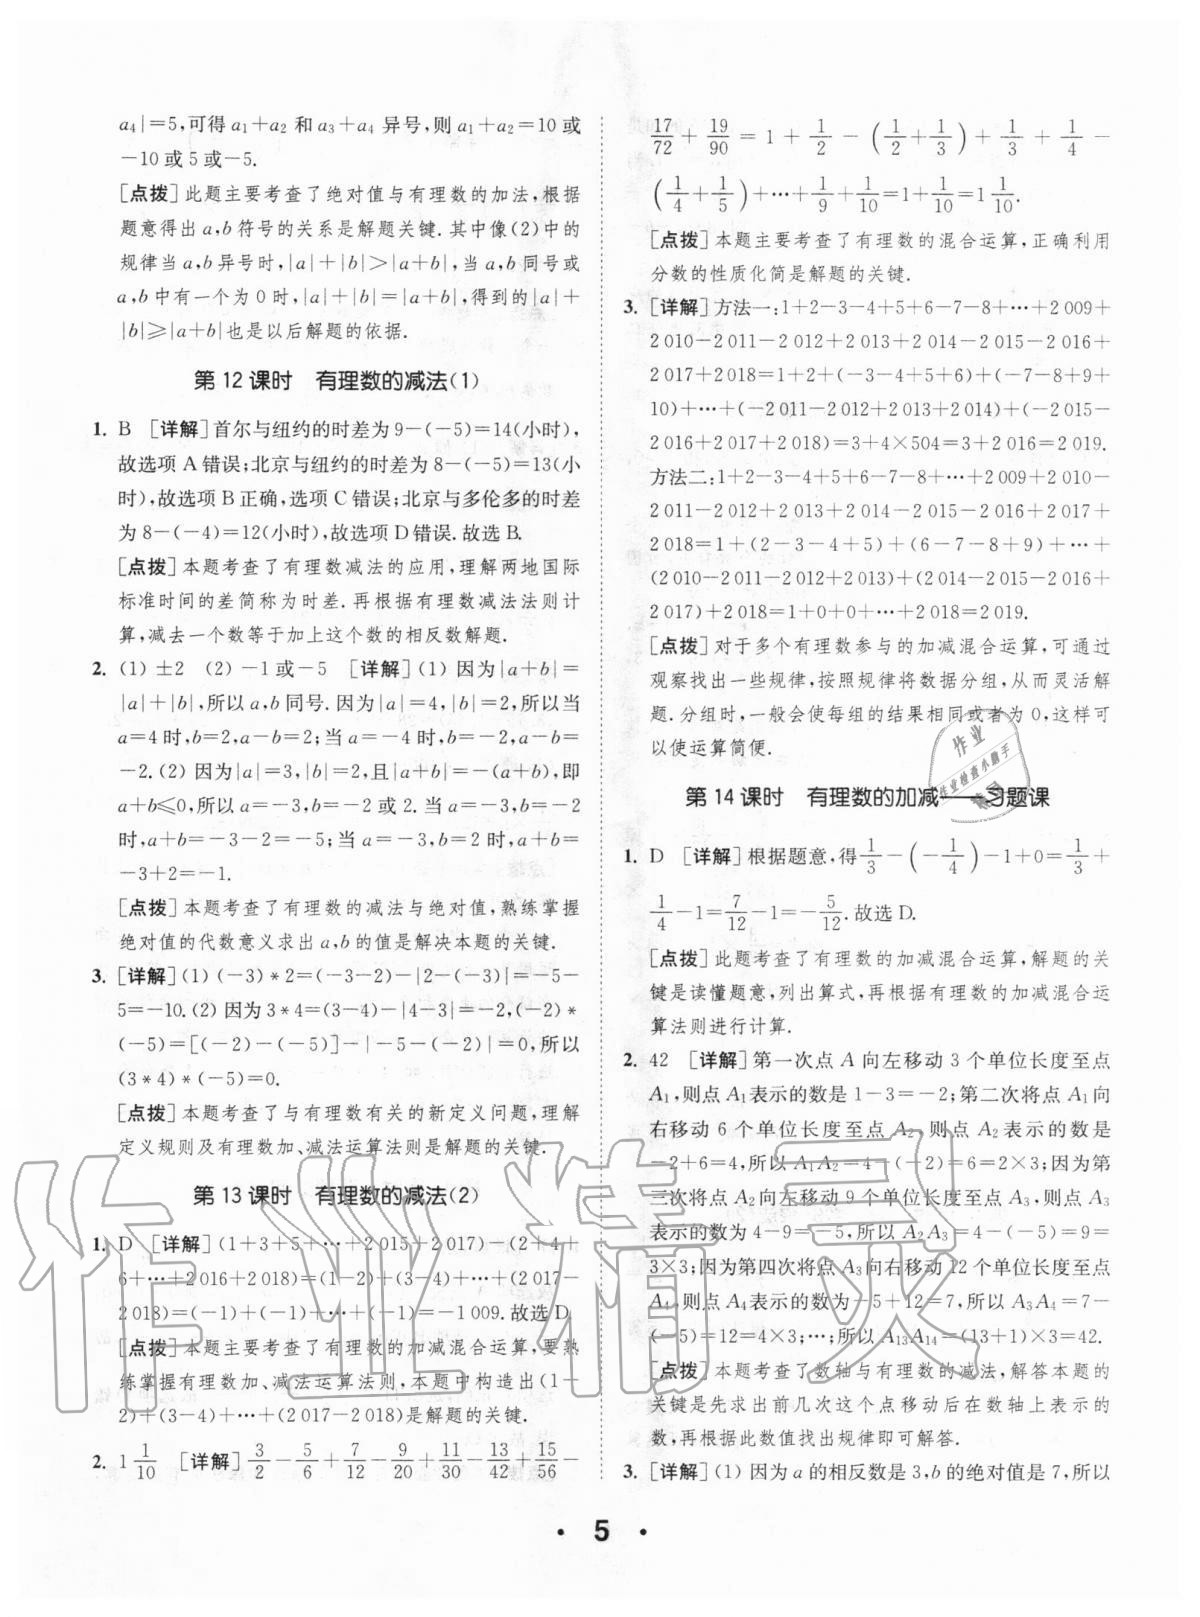 a₄|=5,可得 a₁+a₂ 和 a₃+a₄ 异号,则 a₁+a₂=10 或
-10 或 5 或-5.
[点拨]此题主要考查了绝对值与有理数的加法,根据
题意得出 a,b 符号的关系是解题关键.其中像(2)中的
规律当 a,b 异号时,|a|+|b|>|a+b|,当 a,b 同号或
a,b 中有一个为 0 时,|a|+|b|=|a+b|,得到的|a|+
|b|≥|a+b|也是以后解题的依据.
第 12 课时 有理数的减法(1)
1. B [详解]首尔与纽约的时差为 9-(-5)=14(小时),
故选项 A 错误;北京与纽约的时差为 8-(-5)=13(小
时),故选项 B 正确,选项 C 错误;北京与多伦多的时差
为 8-(-4)=12(小时),故选项 D 错误.故选 B.
[点拨]本题考查了有理数减法的应用,理解两地国际
标准时间的差简称为时差.再根据有理数减法法则计
算,减去一个数等于加上这个数的相反数解题.
2. (1) ±2 (2) -1 或-5 [详解](1) 因为|a+b|=
|a|+|b|,所以 a,b 同号.因为|a|=4,|b|=2,所以当
a=4 时,b=2,a-b=2;当 a=-4 时,b=-2,a-b=
-2.(2) 因为|a|=3,|b|=2,且|a+b|=-(a+b),即
a+b≤0,所以 a=-3,b=-2 或 2.当 a=-3,b=-2
时,a+b=-3-2=-5;当 a=-3,b=2 时,a+b=
-3+2=-1.
[点拨]本题考查了有理数的减法与绝对值,熟练掌握
绝对值的代数意义求出 a,b 的值是解决本题的关键.
3. [详解](1) (-3)*2=(-3-2)-|2-(-3)|=-5-
5=-10.(2) 因为 3*4=(3-4)-|4-3|=-2,(-2)*
(-5)=[(-2)-(-5)]-|-5-(-2)|=0,所以
(3*4)*(-5)=0.
[点拨]本题考查了与有理数有关的新定义问题,理解
定义规则及有理数加、减法运算法则是解题的关键.
第 13 课时 有理数的减法(2)
1. D [详解](1+3+5+…+2 015+2 017)-(2+4+
6+…+2 016+2 018)=(1-2)+(3-4)+…+(2 017-
2 018)=(-1)+(-1)+…+(-1)=-1 009.故选 D.
[点拨]本题考查了有理数的加减混合运算,要熟
练掌握有理数加、减法运算法则,本题中构造出(1-
2)+(3-4)+…+(2 017-2 018)是解题的关键.
2. 1 1/10 [详解] 3/2-5/6+7/12-9/20+11/30-13/42+15/56-
17/72+19/90=1+1/2-(1/2+1/3)+1/3+1/4-
(1/4+1/5)+…+1/9+1/10=1+1/10=1 1/10.
[点拨]本题主要考查了有理数的混合运算,正确利用
分数的性质化简是解题的关键.
3. [详解]方法一:1+2-3-4+5+6-7-8+…+2 009+
2 010-2 011-2 012+2 013+2 014-2 015-2 016+
2 017+2 018=1+2+(-3-4+5+6)+(-7-8+9+
10)+…+(-2 011-2 012+2 013+2 014)+(-2 015-
2 016+2 017+2 018)=3+4×504=3+2 016=2 019.
方法二:1+2-3-4+5+6-7-8+…+2 009+2 010-
2 011-2 012+2 013+2 014-2 015-2 016+2 017+
2 018=1+(2-3-4+5)+(6-7-8+9)+…+
(2 010-2 011-2 012+2 013)+(2 014-2 015-2 016+
2 017)+2 018=1+0+0+…+2 018=2 019.
[点拨]对于多个有理数参与的加减混合运算,可通过
观察找出一些规律,按照规律将数据分组,从而灵活解
题.分组时,一般会使每组的结果相同或者为 0,这样可
以使运算简便.
第 14 课时 有理数的加减——习题课
1. D [详解]根据题意,得 1/3-(-1/4)-1+0=1/3+
1/4-1=7/12-1=-5/12.故选 D.
[点拨]此题考查了有理数的加减混合运算,解题的关
键是读懂题意,列出算式,再根据有理数的加减混合运
算法则进行计算.
2. 42 [详解]第一次点 A 向左移动 3 个单位长度至点
A₁,则点 A₁表示的数是 1-3=-2;第二次将点 A₁向
右移动 6 个单位长度至点 A₂,则点 A₂表示的数是
-2+6=4,所以 A₁A₂=4-(-2)=6=2×3;因为第
三次将点 A₂向左移动 9 个单位长度至点 A₃,则点 A₃
表示的数为 4-9=-5,所以 A₂A₃=4-(-5)=9=
3×3;因为第四次将点 A₃向右移动 12 个单位长度至点
A₄,则点 A₄表示的数为-5+12=7,所以 A₃A₄=7-
(-5)=12=4×3;…;所以 A₁₃A₁₄=(13+1)×3=42.
[点拨]本题考查了数轴与有理数的减法,解答本题的
关键是先求出前几次这个点移动后在数轴上表示的
数,再根据此数值找出规律即可解答.
3. [详解](1) 因为 a 的相反数是 3,b 的绝对值是 7,所以
· 5 ·
作业精灵
作业
作业检查小助手